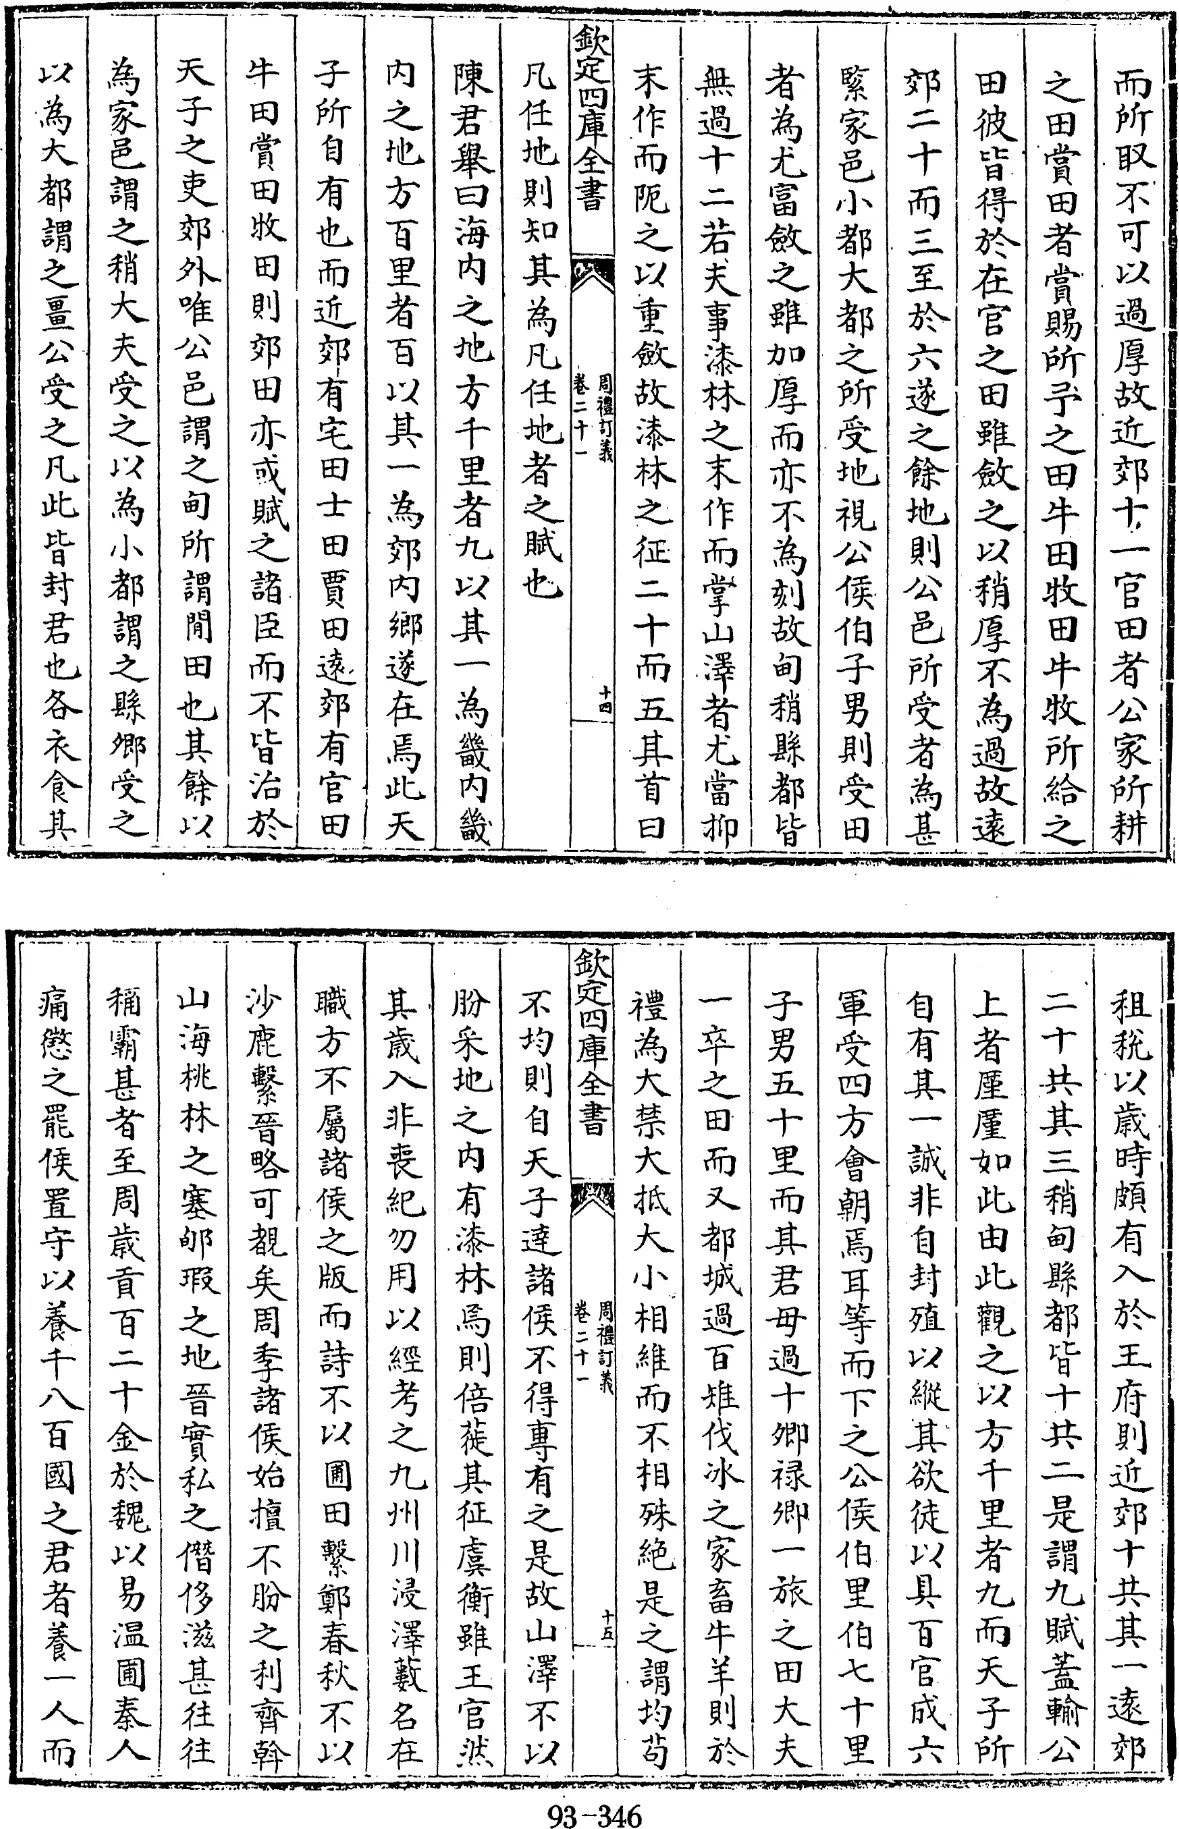 而所取不可以過厚故近郊十一官田者公家所耕
之田賞田者賞賜所予之田牛田牧田牛牧所給之
田彼皆得於在官之田雖斂之以稍厚不為過故逺
郊二十而三至於六遂之餘地則公邑所受者為甚
緊家邑小都大都之所受地視公侯伯子男則受田
者為尤富斂之雖加厚而亦不為刻故甸稍縣都皆
無過十二若夫事漆林之末作而掌山澤者尤當抑
末作而阨之以重斂故漆林之征二十而五其首曰
欽定四庫全書
周禮訂義
卷二十一
十四
凡任地則知其為凡任地者之賦也
陳君舉曰海内之地方千里者九以其一為畿内畿
内之地方百里者百以其一為郊内鄉遂在焉此天
子所自有也而近郊有宅田士田賈田逺郊有官田
牛田賞田牧田則郊田亦或賦之諸臣而不皆治於
天子之吏郊外唯公邑謂之甸所謂閒田也其餘以
為家邑謂之稍大夫受之以為小都謂之縣卿受之
以為大都謂之畺公受之凡此皆封君也各衣食其
租稅以歲時頗有入於王府則近郊十共其一逺郊
二十共其三稍甸縣都皆十共二是謂九賦蓋輸公
上者厪厪如此由此觀之以方千里者九而天子所
自有其一誠非自封殖以縱其欲徒以具百官成六
軍受四方會朝焉耳等而下之公侯伯里伯七十里
子男五十里而其君毋過十卿禄卿一旅之田大夫
一卒之田而又都城過百雉伐冰之家畜牛羊則於
禮為大禁大抵大小相維而不相殊絶是之謂均茍
欽定四庫全書
周禮訂義
卷二十一
十五
不均則自天子逹諸侯不得專有之是故山澤不以
肦采地之内有漆林焉則倍蓰其征虞衡雖王官然
其歲入非喪紀勿用以經考之九州川浸澤藪名在
職方不屬諸侯之版而詩不以圃田繫鄭春秋不以
沙鹿繫晉略可覩矣周季諸侯始擅不肦之利齊斡
山海桃林之塞郇瑕之地晉實私之僭侈滋甚往往
稱霸甚者至周歲貢百二十金於魏以易温圃秦人
痛懲之罷侯置守以養千八百國之君者養一人而
93-346